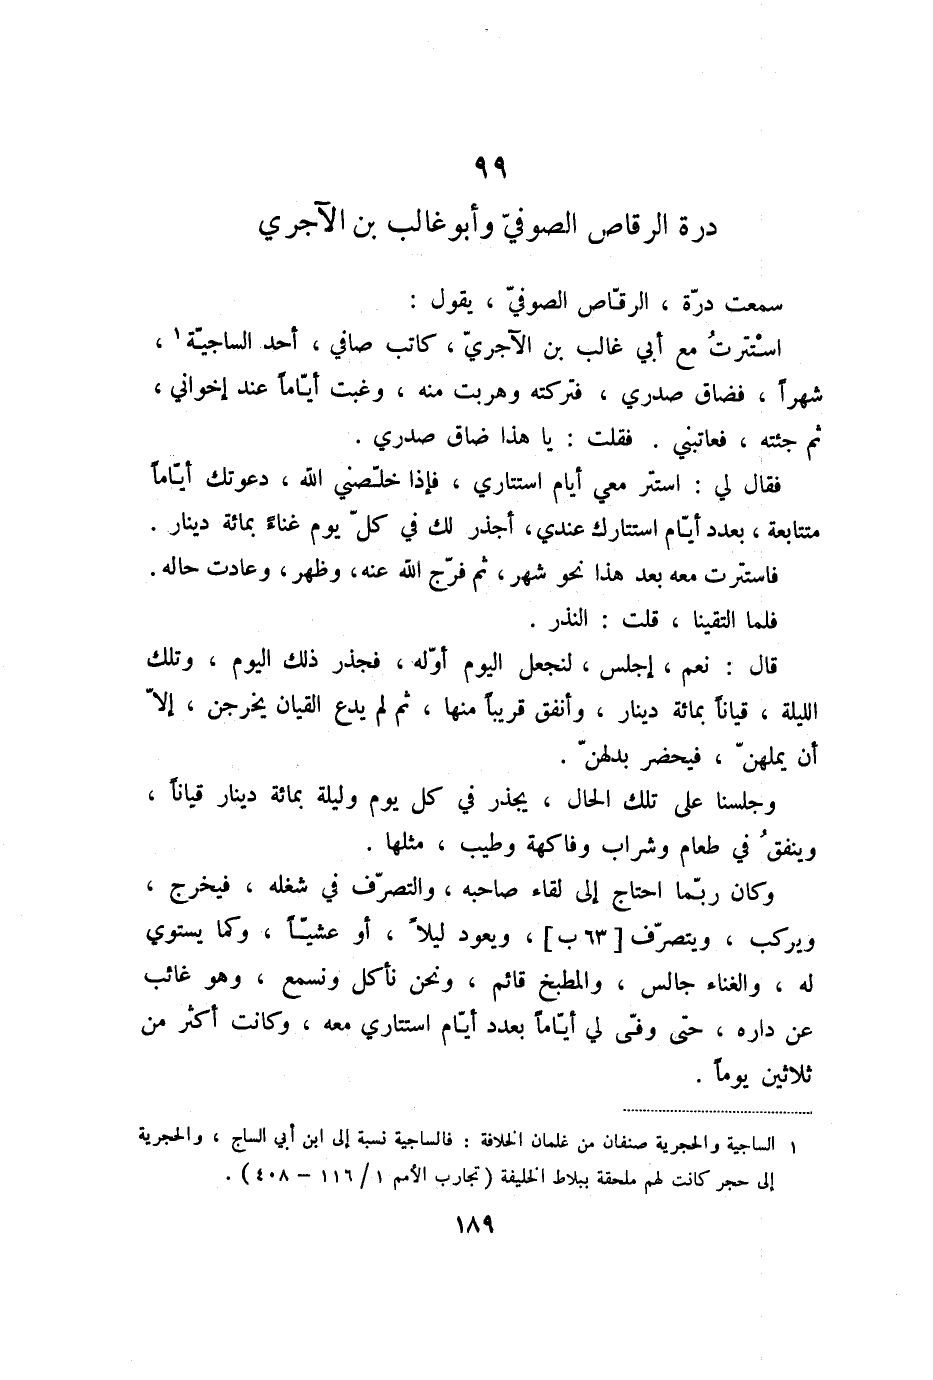 ٩٩
درة الرقاص الصوفيّ وأبو غالب بن الآجري
سمعت درّة ، الرقّاص الصوفيّ ، يقول :
استْترتُ مع أبي غالب بن الآجريّ ، كاتب صافي ، أحد الساجيّة ١ ،
شهراً ، فضاق صدري ، فتركته وهربت منه ، وغبت أيّاماً عند إخواني ،
ثم جئته ، فعاتبني . فقلت : يا هذا ضاق صدري .
فقال لي : استتر معي أيام استتاري ، فإذا خلّصني الله ، دعوتك أيّاماً
متتابعة ، بعدد أيّام استتارك عندي ، أجذر لك في كلّ يوم غناءً بمائة دينار .
فاستترت معه بعد هذا نحو شهر ، ثم فرّج الله عنه ، وظهر ، وعادت حاله .
فلما التقينا ، قلت : النذر .
قال : نعم ، إجلس ، لنجعل اليوم أوّله ، فجذر ذلك اليوم ، وتلك
الليلة ، قياناً بمائة دينار ، وأنفق قريباً منها ، ثم لم يدع القيان يخرجن ، إلاّ
أن يملهنّ ، فيحضر بدلهنّ .
وجلسنا على تلك الحال ، يجذر في كل يوم وليلة بمائة دينار قياناً ،
وينفقُ في طعام وشراب وفاكهة وطيب ، مثلها .
وكان ربّما احتاج إلى لقاء صاحبه ، والتصرّف في شغله ، فيخرج ،
ويركب ، ويتصرّف [ ٦٣ ب ] ، ويعود ليلاً ، أو عشيّاً ، وكما يستوي
له ، والغناء جالس ، والمطبخ قائم ، ونحن نأكل ونسمع ، وهو غائب
عن داره ، حتى وفّى لي أيّاماً بعدد أيّام استتاري معه ، وكانت أكثر من
ثلاثين يوماً .
١ الساجية والحجرية صنفان من غلمان الخلافة : فالساجية نسبة إلى ابن أبي الساج ، والحجرية
إلى حجر كانت لهم ملحقة ببلاط الخليفة ( تجارب الأمم ١ / ١١٦ – ٤٠٨ ) .
١٨٩